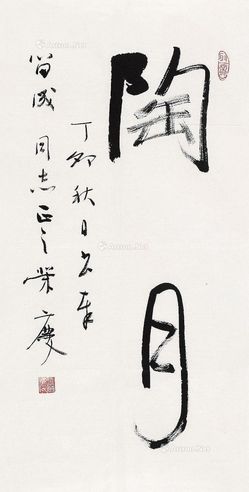 陶月
丁卯秋日书奉
留成同志正之荣庆